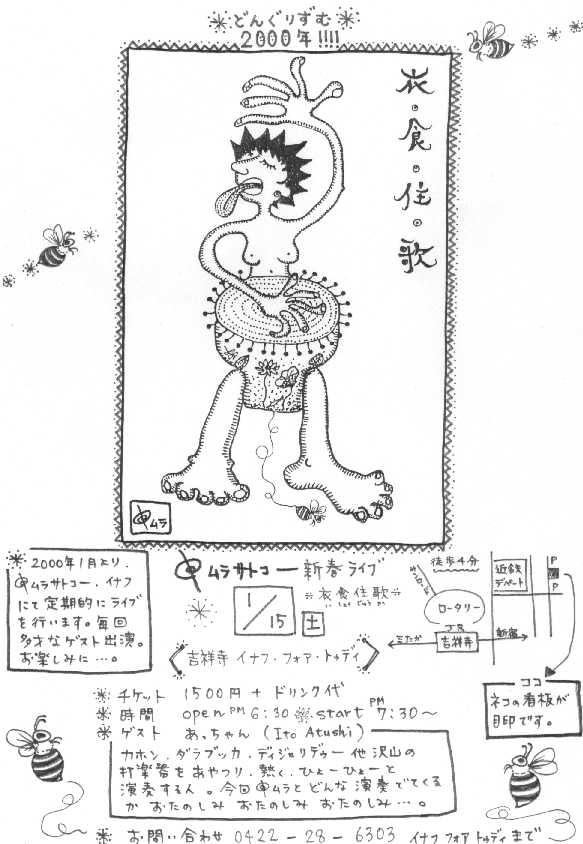 どんぐりずむ
2000年!!!!
衣・食・住・歌
ムラ
2000年1月より、
ムラサトコー、イナフ
にて定期的にライブ
を行います。毎回
多才なゲスト出演。
お楽しみに…。
ムラサトコー新春ライブ
衣食住歌
1/15 土
吉祥寺 イナフ・フォア・トゥディ
徒歩4分
サンロード
ロータリー
近鉄
デパート
P
P
JR
吉祥寺
三たか
新宿
ココ
ネコの看板が
目印です。
チケット 1500円+ドリンク代
時間 open PM 6:30 start PM 7:30〜
ゲスト あっちゃん (Ito Atushi)
カホン、ダラブッカ、ディジュリデゥー他 沢山の
打楽器をあやつり、熱く、ひょーひょーと
演奏する人。今回ムラとどんな演奏でてくる
か おたのしみ おたのしみ おたのしみ…。
お問い合わせ 0422-28-6303 イナフ フォア トゥディまで